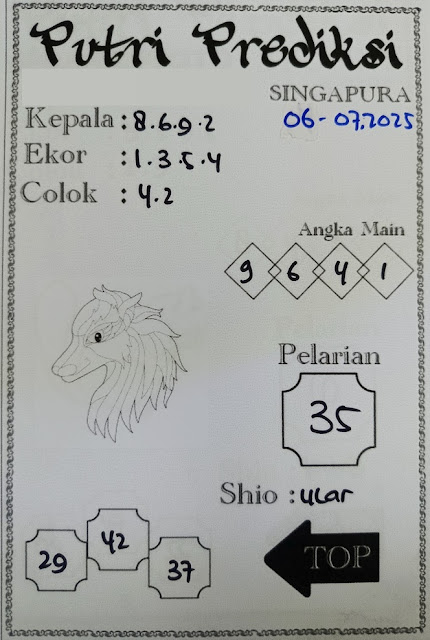 Putri Prediksi
SINGAPURA
06-07.2025
Kepala : 8.6.9.2
Ekor : 1.3.5.4
Colok : 4.2
Angka Main
9 6 4 1
Pelarian
35
Shio : ular
29 42 37
TOP